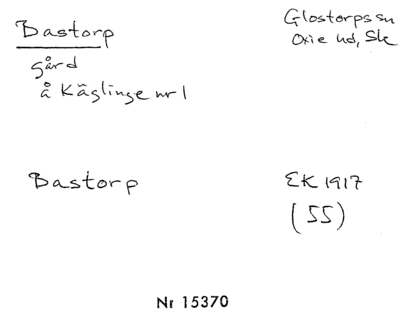 Bastorp
Glostorps sn
Oxie hd, Sk
gård
å Käglinge nr 1
Bastorp
EK 1917
(55)
Nr 15370